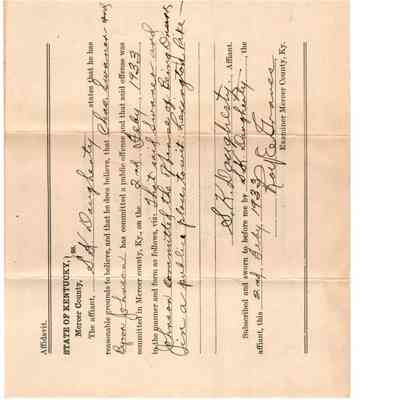 Affidavit.
STATE OF KENTUCKY, } ss.
Mercer County,
The affiant, S.K. Daugherty states that he has
reasonable grounds to believe, and that he does believe, that Chas. Swaner and
Byron Johnson has committed a public offense and that said offense was
committed in Mercer county, Ky., on the 2nd July 1933
in the manner and form as follows, viz: That said Swaner and
Johnson committed the offense of Being Drunk
in a public place to-wit Lexington Pike
S.K. Daugherty Affiant.
Subscribed and sworn to before me by S.K. Daugherty, the
affiant, this 2nd July 1933
Examiner Mercer County, Ky.